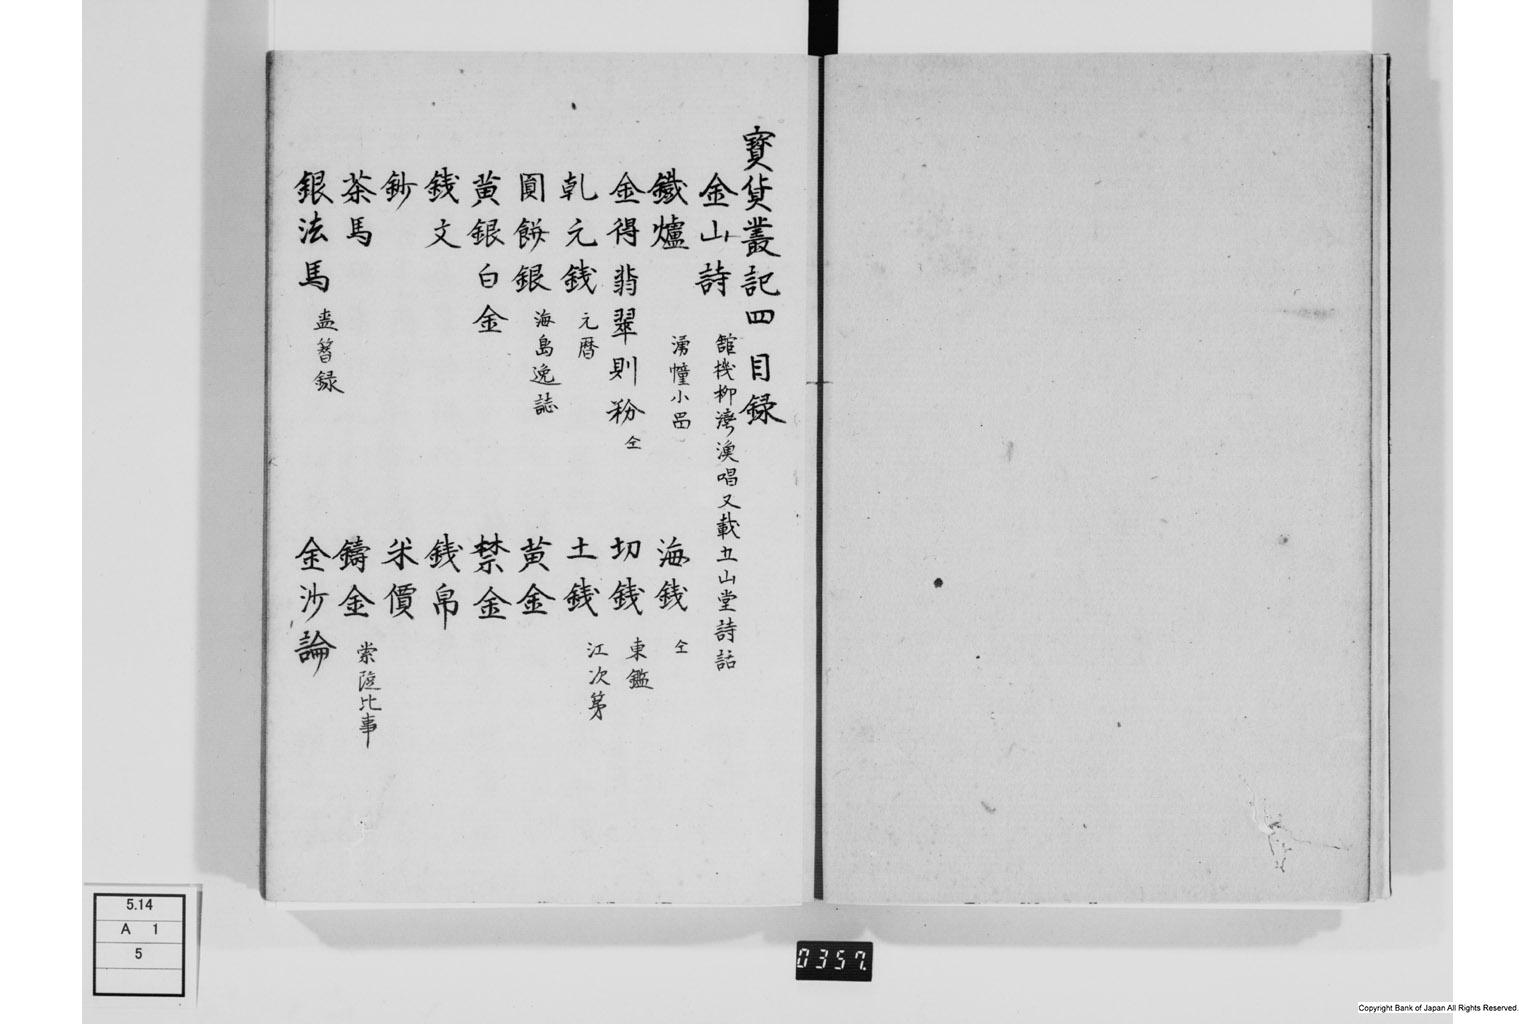 寶貨叢記四 目録
金山詩 舘機柳湾漁唱又載五山堂詩話
鐵爐 湧幢小品 海錢 仝
金得翡翠則粉 仝 切錢 東鑑
乹元錢 元暦 土錢 江次第
圓餅銀 海島逸誌 黄金
黄銀白金 禁金
錢文 錢帛
鈔 米價
茶馬 鑄金 崇陵比事
銀法馬 盍簪録 金沙論
5.14
A 1
5
0357.
Copyright Bank of Japan All Rights Reserved.